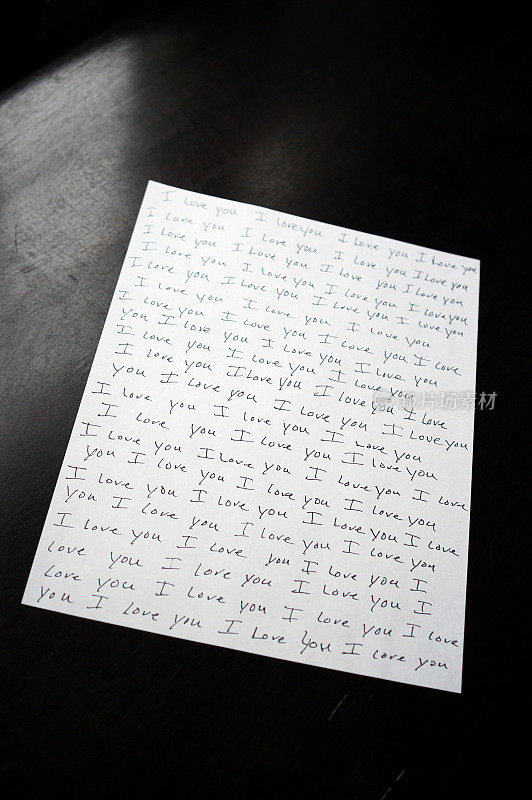 I love you I love you I love you I love you
I love you I love you I love you I love you
I love you I love you I love you I love you
I love you I love you I love you I love you
I love you I love you I love you I love you
I love you I love you I love you
I love you I love you I love you I love
you I love you I love you I love you
I love you I love you I love you
I love you I love you I love you I love
you I love you I love you I love you
I love you I love you I love you
I love you I love you I love you
I love you I love you I love you I love
you I love you I love you I love you
I love you I love you I love you I love
you I love you I love you I love you
I love you I love you I love you I
love you I love you I love you I
love you I love you I love you I love
you I love you I love you I love you